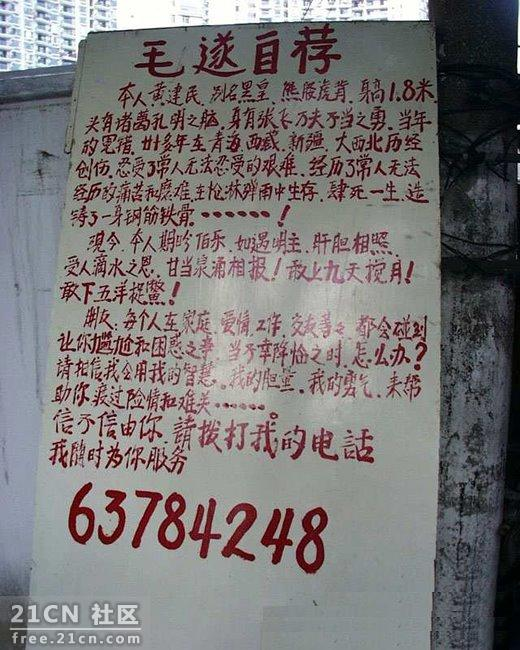 毛遂自荐
本人黄建民，别名黑皇，熊腰虎背，身高1.8米，
头有诸葛孔明之脑，身有张飞万夫不当之勇，当年
的黑猪，廿多年在青海、西藏、新疆、大西北历经
创伤，忍受了常人无法忍受的艰难，经历了常人无法
经历的痛苦和磨难，在枪林弹雨中生存，肆死一生，造
铸了一身钢筋铁骨……！
现今，本人期盼佰乐，如遇明主，肝胆相照，
受人滴水之恩，甘当泉涌相报！敢上九天揽月！
敢下五洋捉鳖！
朋友：每个人在家庭、爱情、工作、交友等等，都会碰到
让你尴尬和困惑之事，当不幸降临之时，怎么办？
请相信我会用我的智慧、我的胆量、我的勇气，来帮
助你渡过险情和难关……。
信不信由你，请拨打我的电话
我随时为你服务
63784248
21CN 社区
free.21cn.com